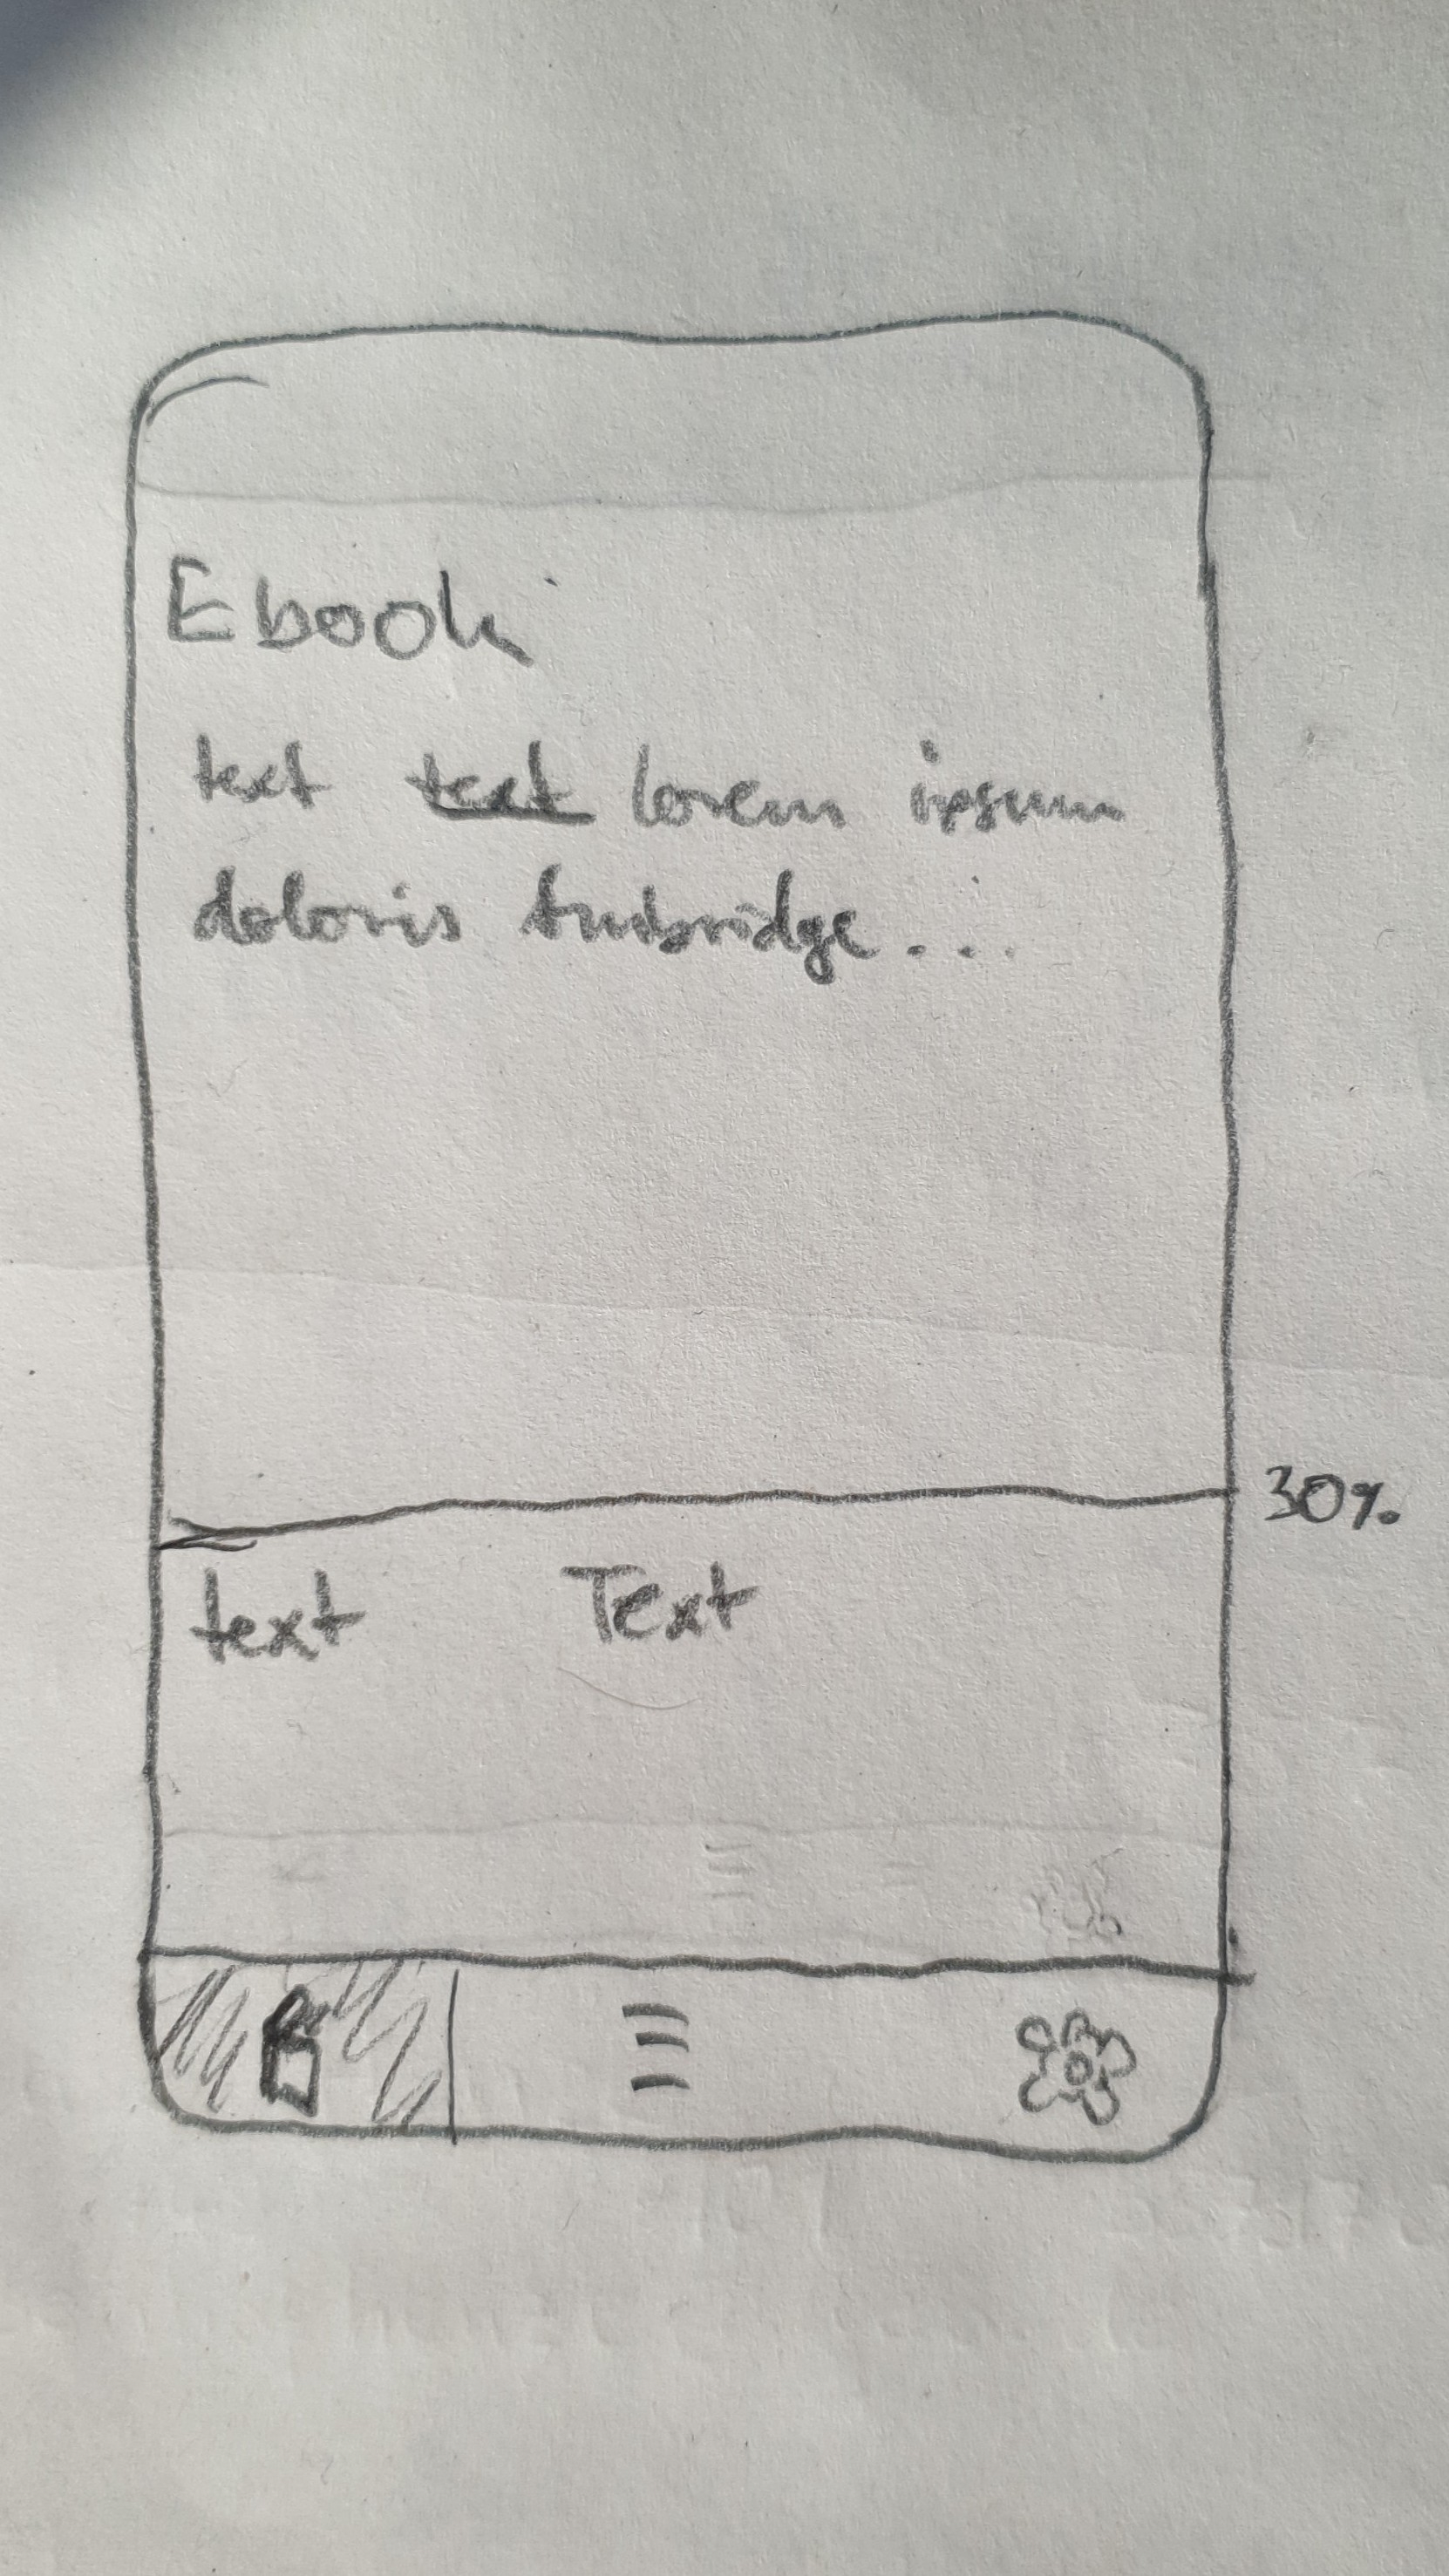 Ebook
text text lorem ipsum
doloris tunbridge...
30%
text Text